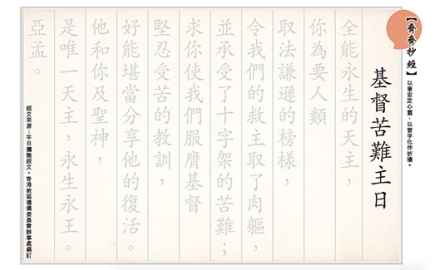 【齊齊抄經】
以筆安定心靈，以習字化作祈禱。
基督苦難主日
全能永生的天主，
你為要人類
取法謙遜的榜樣，
令我們的救主取了肉軀，
並承受了十字架的苦難；
求你使我們服膺基督
堅忍受苦的教訓，
好能堪當分享他的復活。
他和你及聖神，
是唯一天主，永生永王。
亞孟。
經文來源：平日彌撒經文，香港教區禮儀委員會辦事處編訂